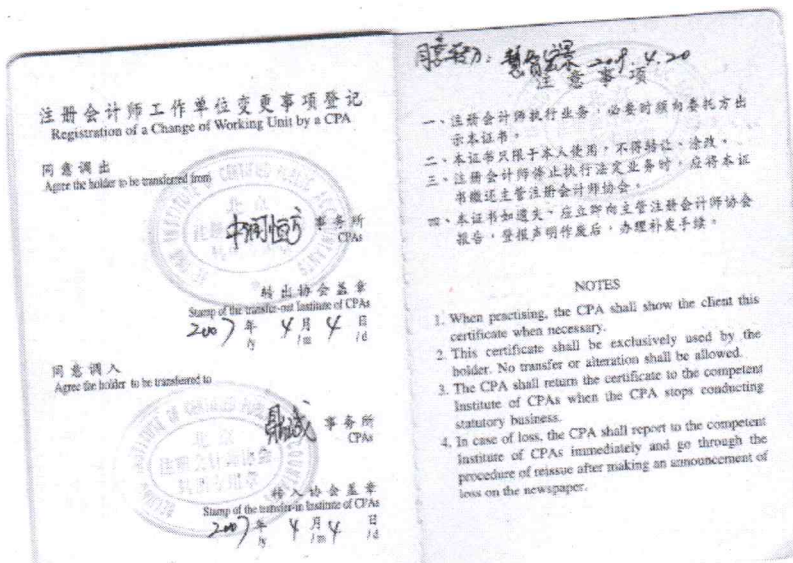 注册会计师工作单位变更事项登记
Registration of a Change of Working Unit by a CPA
同意调出
Agree the holder to be transferred from
中润恒方 事务所
CPAs
转出协会盖章
Stamp of the transfer-out Institute of CPAs
2007 年 4 月 4 日
/y /m /d
同意调入
Agree the holder to be transferred to
鼎诚 事务所
CPAs
转入协会盖章
Stamp of the transfer-in Institute of CPAs
2007 年 4 月 4 日
/y /m /d
4.20
注意事项
一、注册会计师执行业务，必要时须向委托方出
示本证书。
二、本证书只限于本人使用，不得转让、涂改。
三、注册会计师停止执行法定业务时，应将本证
书缴还主管注册会计师协会。
四、本证书如遗失、应立即向主管注册会计师协会
报告，登报声明作废后，办理补发手续。
NOTES
1. When practising, the CPA shall show the client this
certificate when necessary.
2. This certificate shall be exclusively used by the
holder. No transfer or alteration shall be allowed.
3. The CPA shall return the certificate to the competent
Institute of CPAs when the CPA stops conducting
statutory business.
4. In case of loss, the CPA shall report to the competent
Institute of CPAs immediately and go through the
procedure of reissue after making an announcement of
loss on the newspaper.